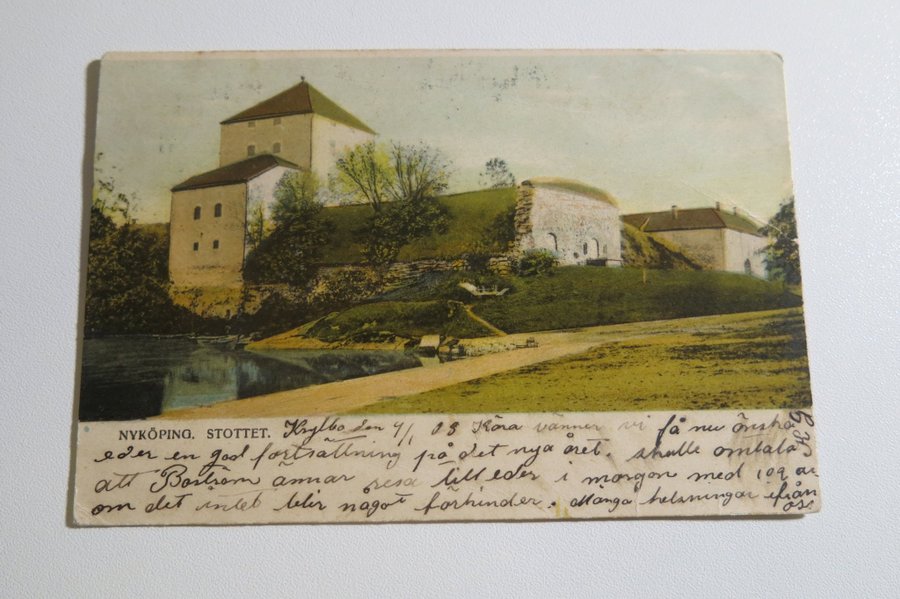 NYKÖPING. STOTTET. Krylbo den 4/1 03 Kära vänner vi få nu önska
eder en god fortsättning på det nya året. skulle omtala
att Boström ämnar resa till eder i morgon med 109 an
om det intet blir något förhinder. Många helsningar ifrån
oss